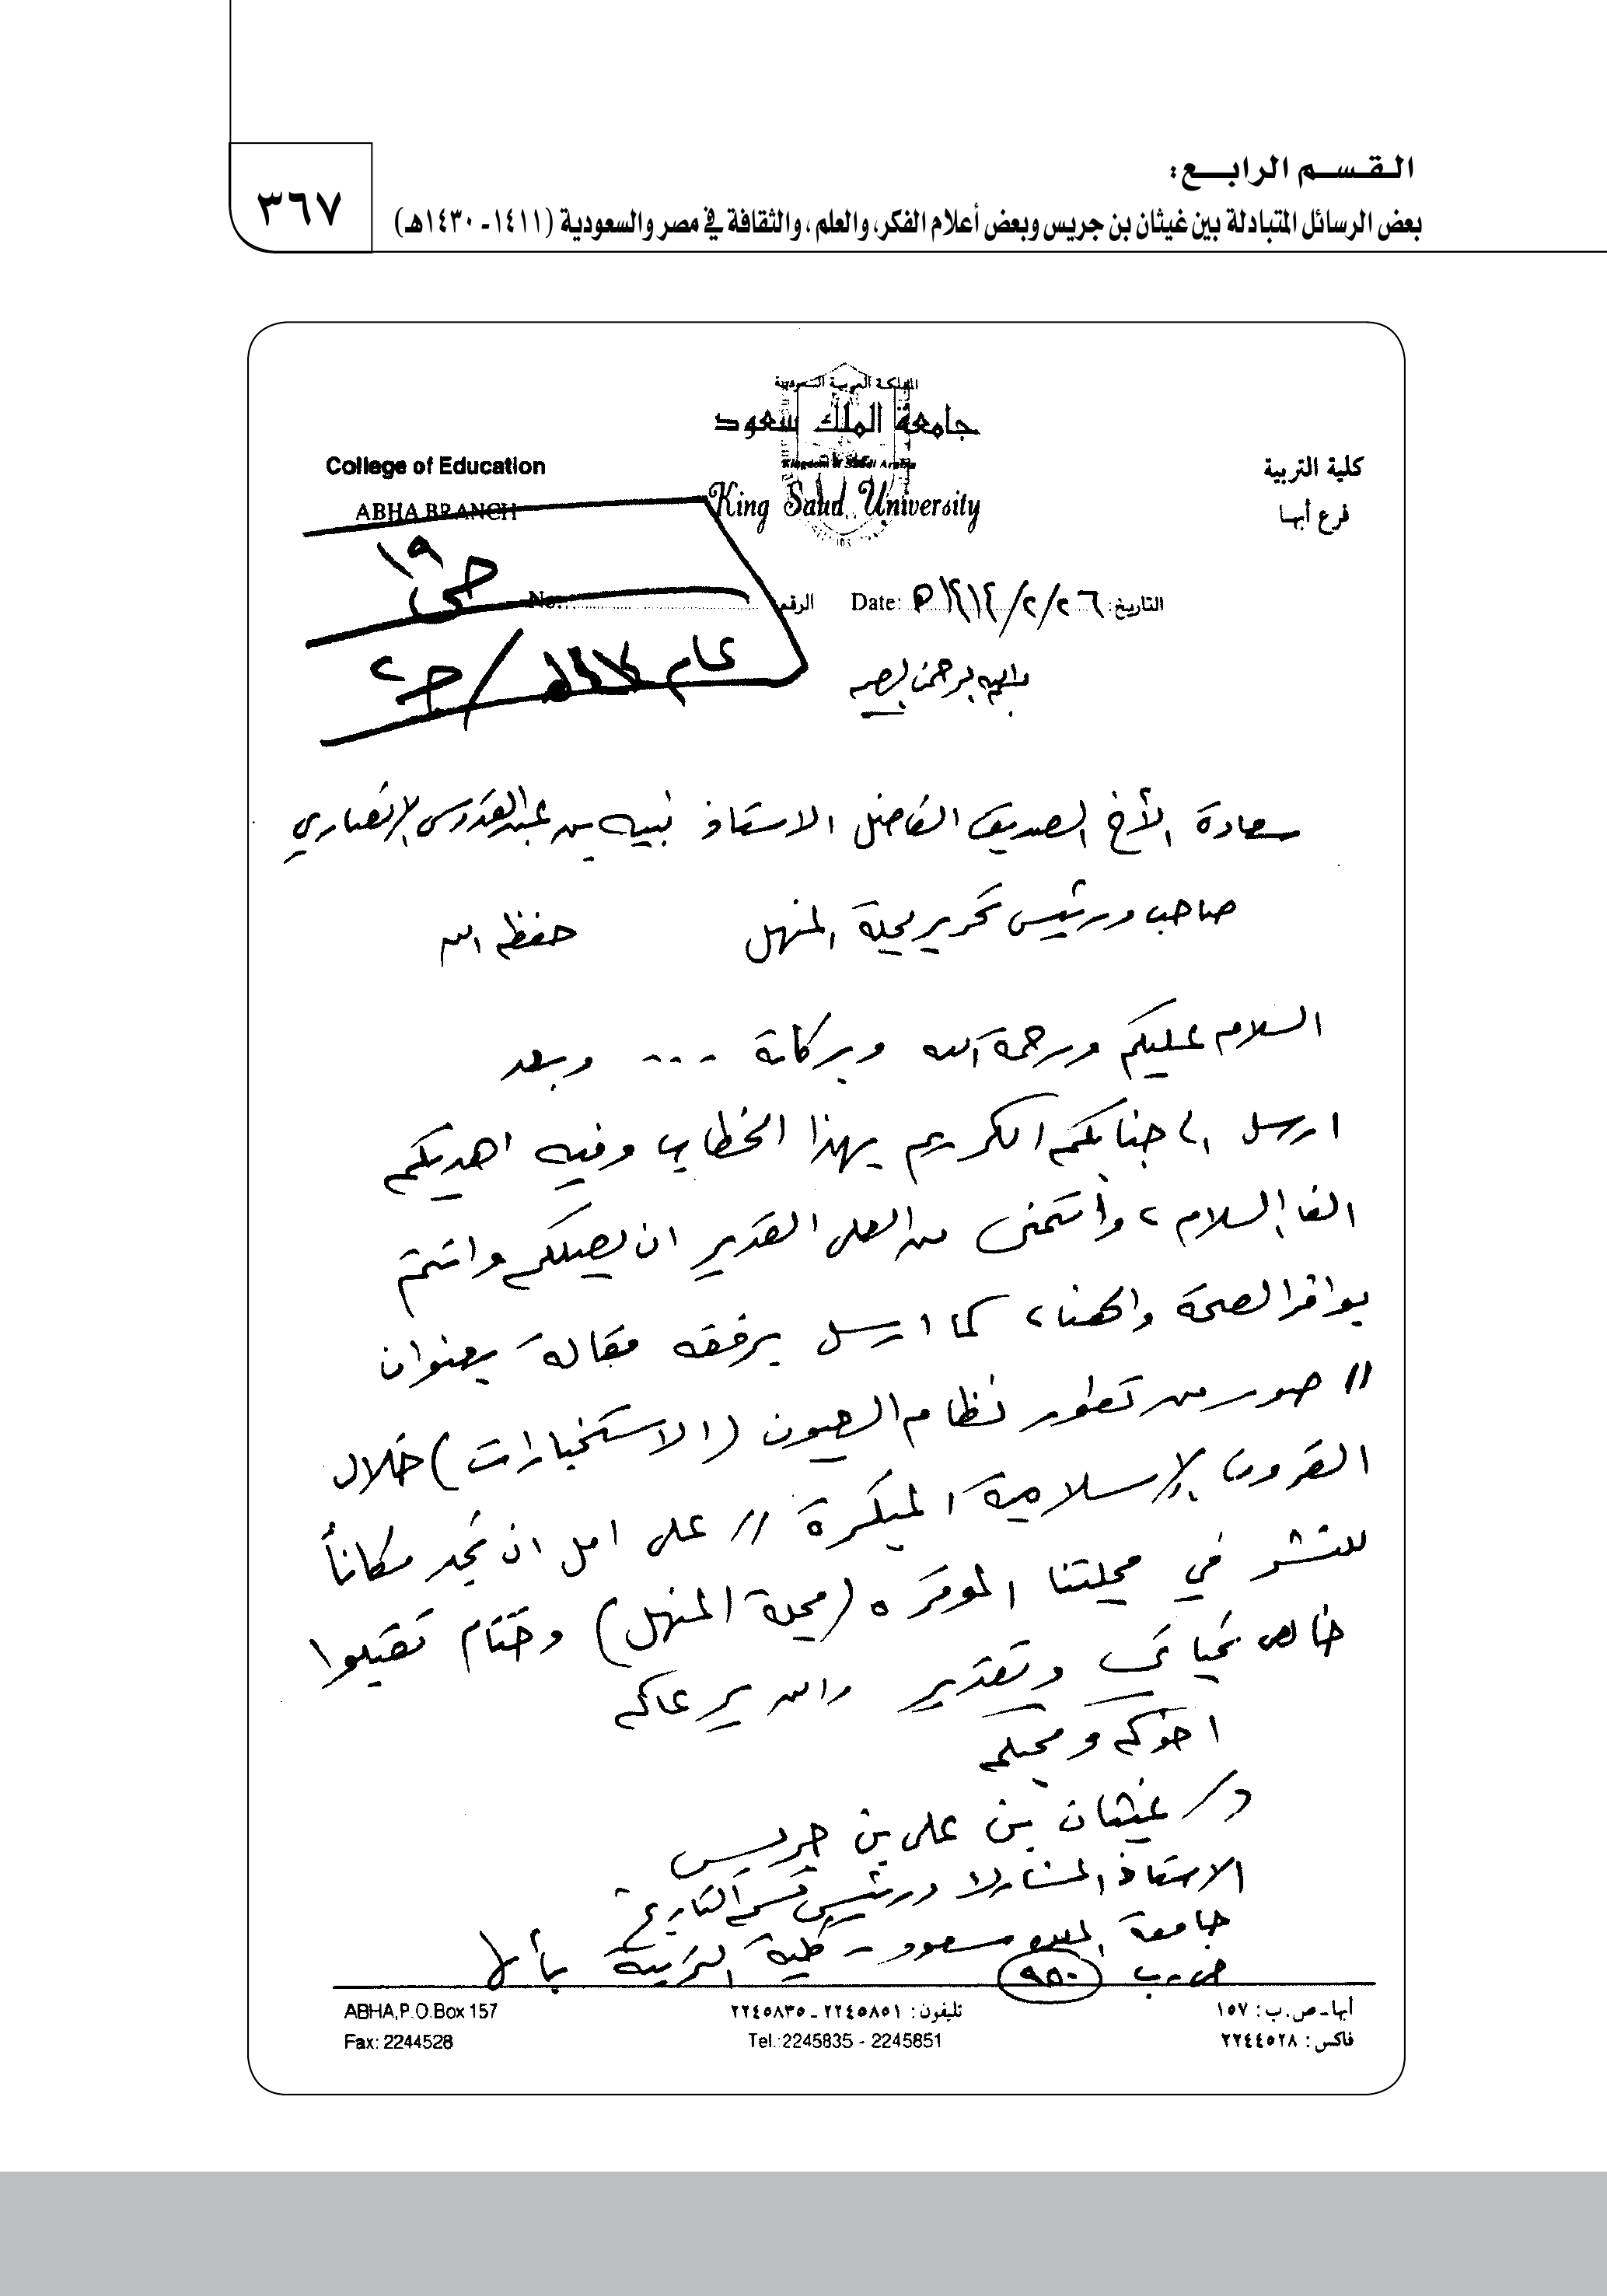 القسم الرابع:
بعض الرسائل المتبادلة بين غيثان بن جريس وبعض أعلام الفكر، والعلم، والثقافة في مصر والسعودية (١٤١١ـ ١٤٣٠هـ)
٣٦٧
المملكة العربية السعودية
جامعة الملك سعود
Kingdom of Saudi Arabia
King Saud University
كلية التربية
فرع أبها
College of Education
ABHA BRANCH
التاريخ: ٢٦/٢/١٤١٤هـ Date:
الرقم No:
١٩
عام / ح٢
سعادة الأخ الصديق الفاضل الاستاذ نبيه بن عبدالقدوس الانصاري
صاحب ورئيس تحرير مجلة المنهل حفظه الله
السلام عليكم ورحمة الله وبركاته ... وبعد
ارسل الى جنابكم الكريم بهذا الخطاب وفيه اهديكم
الف السلام، وأتمنى من العلي القدير ان يصلكم وانتم
بوافر الصحة والهناء، كما ارسل برفقه مقالة بعنوان
// صور من تطور نظام العيون (الاستخبارات) خلال
القرون الإسلامية المبكرة // على امل ان تجد مكاناً
للنشر في مجلتنا الموقره (مجلة المنهل) وختام تقبلوا
خالص تحياتي وتقدير والله يرعاكم
اخوكم ومحبكم
د/ غيثان بن علي بن جريس
الاستاذ المشارك ورئيس قسم التاريخ
جامعة الملك سعود - كلية التربية بأبها
ص.ب ٩٨٠
أبها ـ ص.ب: ١٥٧
فاكس: ٢٢٤٤٥٢٨
تليفون: ٢٢٤٥٨٥١ ـ ٢٢٤٥٨٣٥
Tel.:2245835 - 2245851
ABHA,P.O.Box 157
Fax: 2244528